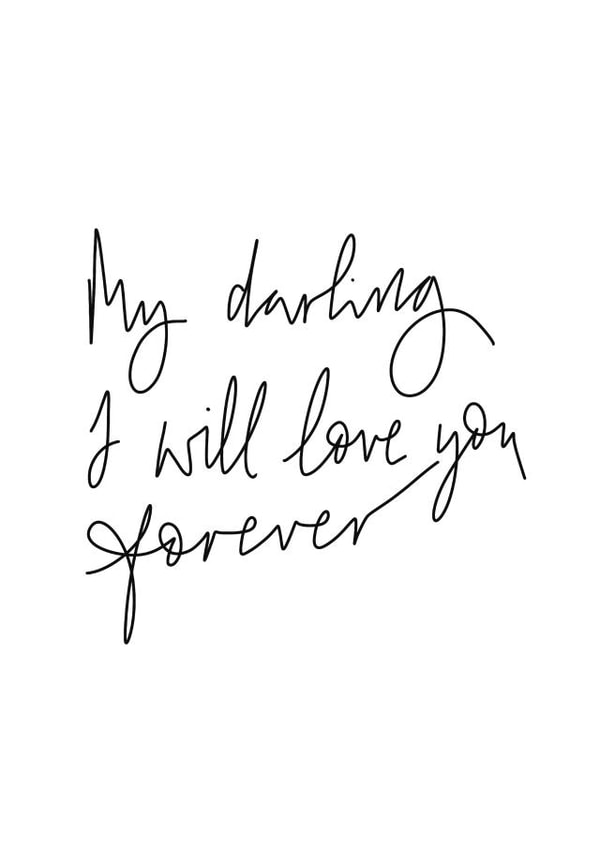 My darling
I will love you
forever